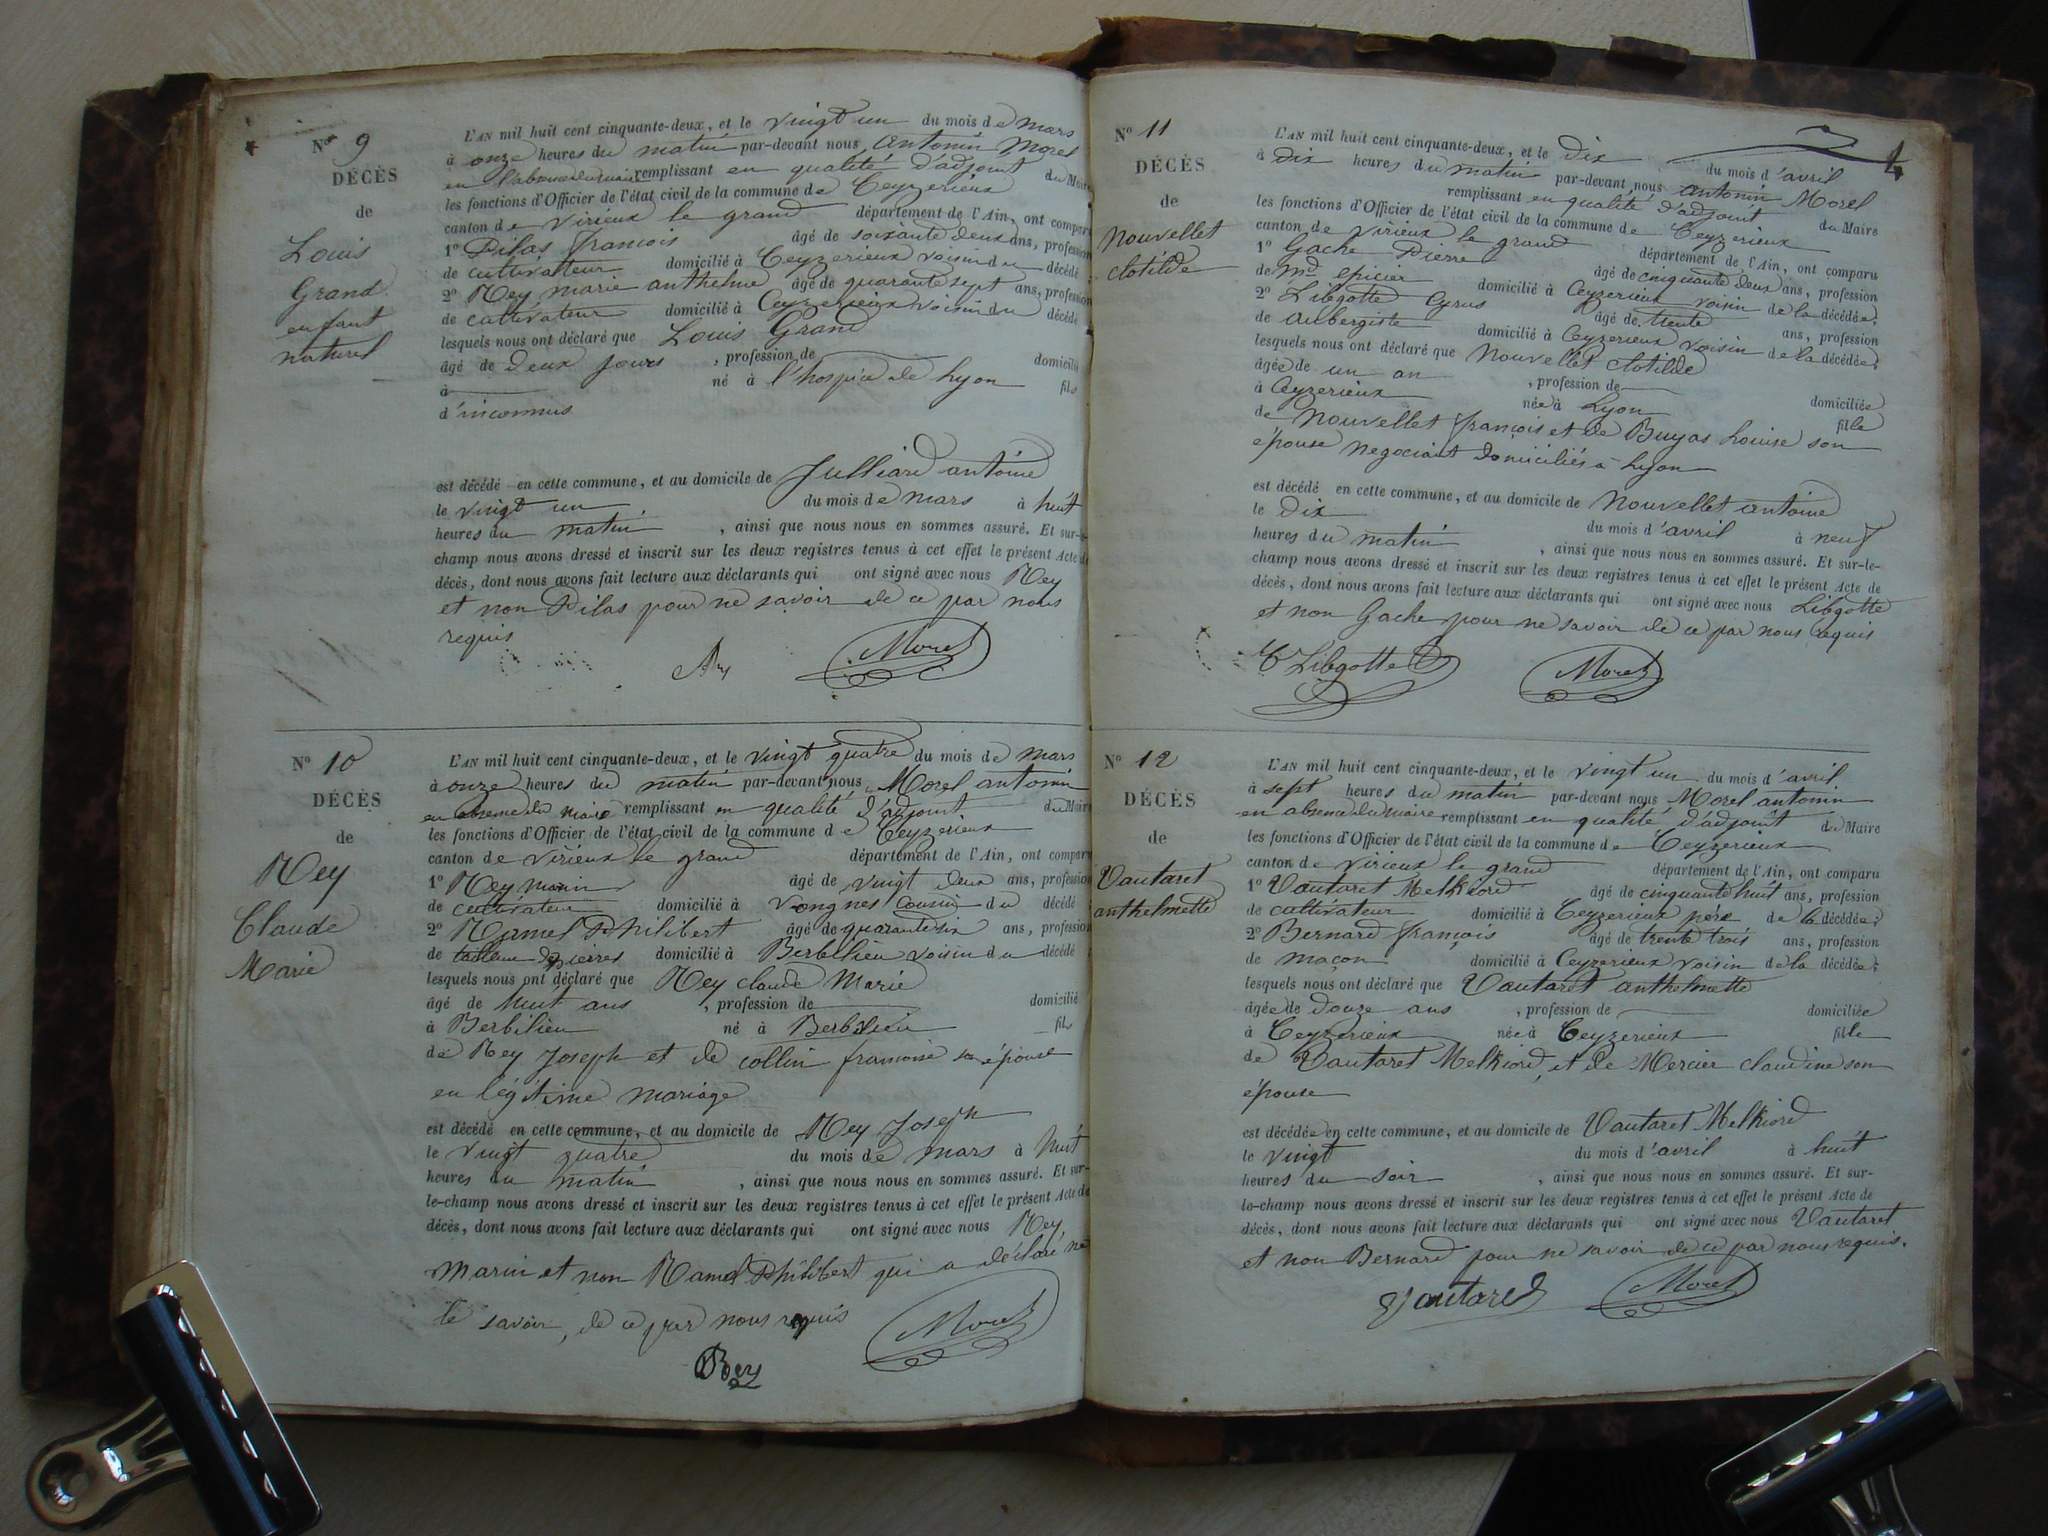 N° 9
DÉCÈS
de
Louis
Grand
enfant
naturel
L'AN mil huit cent cinquante-deux, et le vingt un du mois de mars
à onze heures du matin par-devant nous Antonin Morel
en l'absence du maire remplissant en qualité d'adjoint du Maire
les fonctions d'Officier de l'état civil de la commune de Ceyzerieux
canton de virieux le grand département de l'Ain, ont comparu
1° Pilas françois âgé de soixante deux ans, profession
de cultivateur domicilié à Ceyzerieux voisin du décédé
2° Rey marie anthelme âgé de quarante sept ans, profession
de cultivateur domicilié à Ceyzerieux voisin du décédé
lesquels nous ont déclaré que Louis Grand
âgé de deux jours, profession de domicilié
à né à l'hospice de Lyon fils
d'inconnus
est décédé en cette commune, et au domicile de Julliard antoine
le vingt un du mois de mars à huit
heures du matin, ainsi que nous nous en sommes assuré. Et sur-le-
champ nous avons dressé et inscrit sur les deux registres tenus à cet effet le présent Acte de
décès, dont nous avons fait lecture aux déclarants qui ont signé avec nous Rey
et non Pilas pour ne savoir de ce par nous
requis
Rey Morel
N° 10
DÉCÈS
de
Rey
Claude
Marie
L'AN mil huit cent cinquante-deux, et le vingt quatre du mois de mars
à onze heures du matin par-devant nous Morel antonin
en absence du maire remplissant en qualité d'adjoint du Maire
les fonctions d'Officier de l'état civil de la commune de Ceyzerieux
canton de virieux le grand département de l'Ain, ont comparu
1° Rey marin âgé de vingt deux ans, profession
de cultivateur domicilié à vongnes cousin du décédé
2° Ramel Philibert âgé de quarante six ans, profession
de tailleur de pierres domicilié à Berbilieu voisin du décédé
lesquels nous ont déclaré que Rey claude Marie
âgé de huit ans, profession de domicilié
à Berbilieu né à Berbilieu fils
de Rey Joseph et de collin francoise sa épouse
en légitime mariage
est décédé en cette commune, et au domicile de Rey Joseph
le vingt quatre du mois de mars à huit
heures du matin, ainsi que nous nous en sommes assuré. Et sur-
le-champ nous avons dressé et inscrit sur les deux registres tenus à cet effet le présent Acte de
décès, dont nous avons fait lecture aux déclarants qui ont signé avec nous Rey
Marin et non Ramel Philibert qui a déclaré ne
le savoir, de ce par nous requis
Morel
Rey
4
N° 11
DÉCÈS
de
Nouvellet
clotilde
L'AN mil huit cent cinquante-deux, et le dix du mois d'avril
à dix heures du matin par-devant nous antonin Morel
remplissant en qualité d'adjoint du Maire
les fonctions d'Officier de l'état civil de la commune de Ceyzerieux
canton de virieux le grand département de l'Ain, ont comparu
1° Gache Pierre âgé de cinquante deux ans, profession
de md épicier domicilié à Ceyzerieux voisin de la décédée.
2° Libgotte Cyrus âgé de trente ans, profession
de aubergiste domicilié à Ceyzerieux voisin de la décédée;
lesquels nous ont déclaré que Nouvellet clotilde
âgée de un an, profession de domiciliée
à Ceyzerieux née à Lyon fille
de Nouvellet françois et de Buyas Louise son
épouse negociant domiciliés à Lyon
est décédé en cette commune, et au domicile de Nouvellet antoine
le dix du mois d'avril à neuf
heures du matin, ainsi que nous nous en sommes assuré. Et sur-le-
champ nous avons dressé et inscrit sur les deux registres tenus à cet effet le présent Acte de
décès, dont nous avons fait lecture aux déclarants qui ont signé avec nous Libgotte
et non Gache pour ne savoir de ce par nous requis
C Libgotte Morel
N° 12
DÉCÈS
de
Vautaret
anthelmette
L'AN mil huit cent cinquante-deux, et le vingt un du mois d'avril
à sept heures du matin par-devant nous Morel antonin
en absence du maire remplissant en qualité d'adjoint du Maire
les fonctions d'Officier de l'état civil de la commune de Ceyzerieux
canton de virieux le grand département de l'Ain, ont comparu
1° Vautaret Melkiord âgé de cinquante huit ans, profession
de cultivateur domicilié à Ceyzerieux père de la décédée;
2° Bernard françois âgé de trente trois ans, profession
de maçon domicilié à Ceyzerieux voisin de la décédée;
lesquels nous ont déclaré que Vautaret anthelmette
âgée de douze ans, profession de domiciliée
à Ceyzerieux née à Ceyzerieux fille
de Vautaret Melkiord, et de Mercier claudine son
épouse
est décédée en cette commune, et au domicile de Vautaret Melkiord
le vingt du mois d'avril à huit
heures du soir, ainsi que nous nous en sommes assuré. Et sur-
le-champ nous avons dressé et inscrit sur les deux registres tenus à cet effet le présent Acte de
décès, dont nous avons fait lecture aux déclarants qui ont signé avec nous Vautaret
et non Bernard pour ne savoir de ce par nous requis.
Vautaret Morel